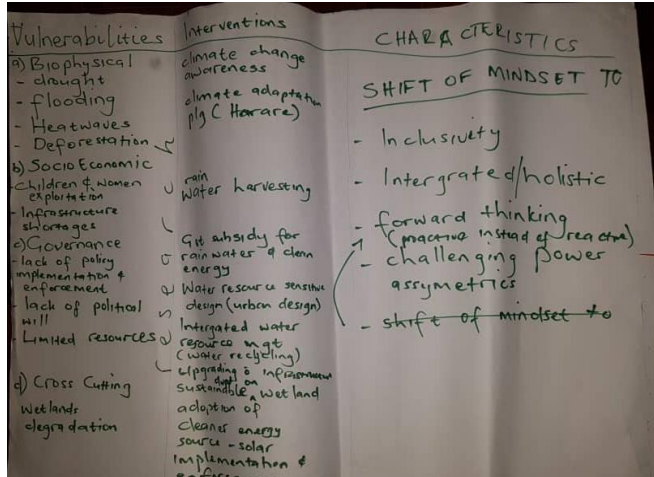 Vulnerabilities
a) Biophysical
- drought
- flooding
- Heatwaves
- Deforestation
b) Socio Economic
- Children & women
exploitation
- Infrastructure
shortages
c) Governance
- lack of policy
implementation &
enforcement
- lack of political
will
- Limited resources
d) Cross Cutting
wetlands
degradation
Interventions
climate change
awareness
climate adaptation
plg (Harare)
rain
water harvesting
Gvt subsidy for
rain water & clean
energy
Water resource sensitive
design (urban design)
Intergated water
resource mgt
(water recycling)
Upgrading
sustainable wetland
adoption of
cleaner energy
source - solar
implementation &
CHARACTERISTICS
SHIFT OF MINDSET TO
- Inclusivity
- Intergrated/holistic
- forward thinking
(proactive instead of reactive)
- challenging power
assymetrics
- shift of mindset to